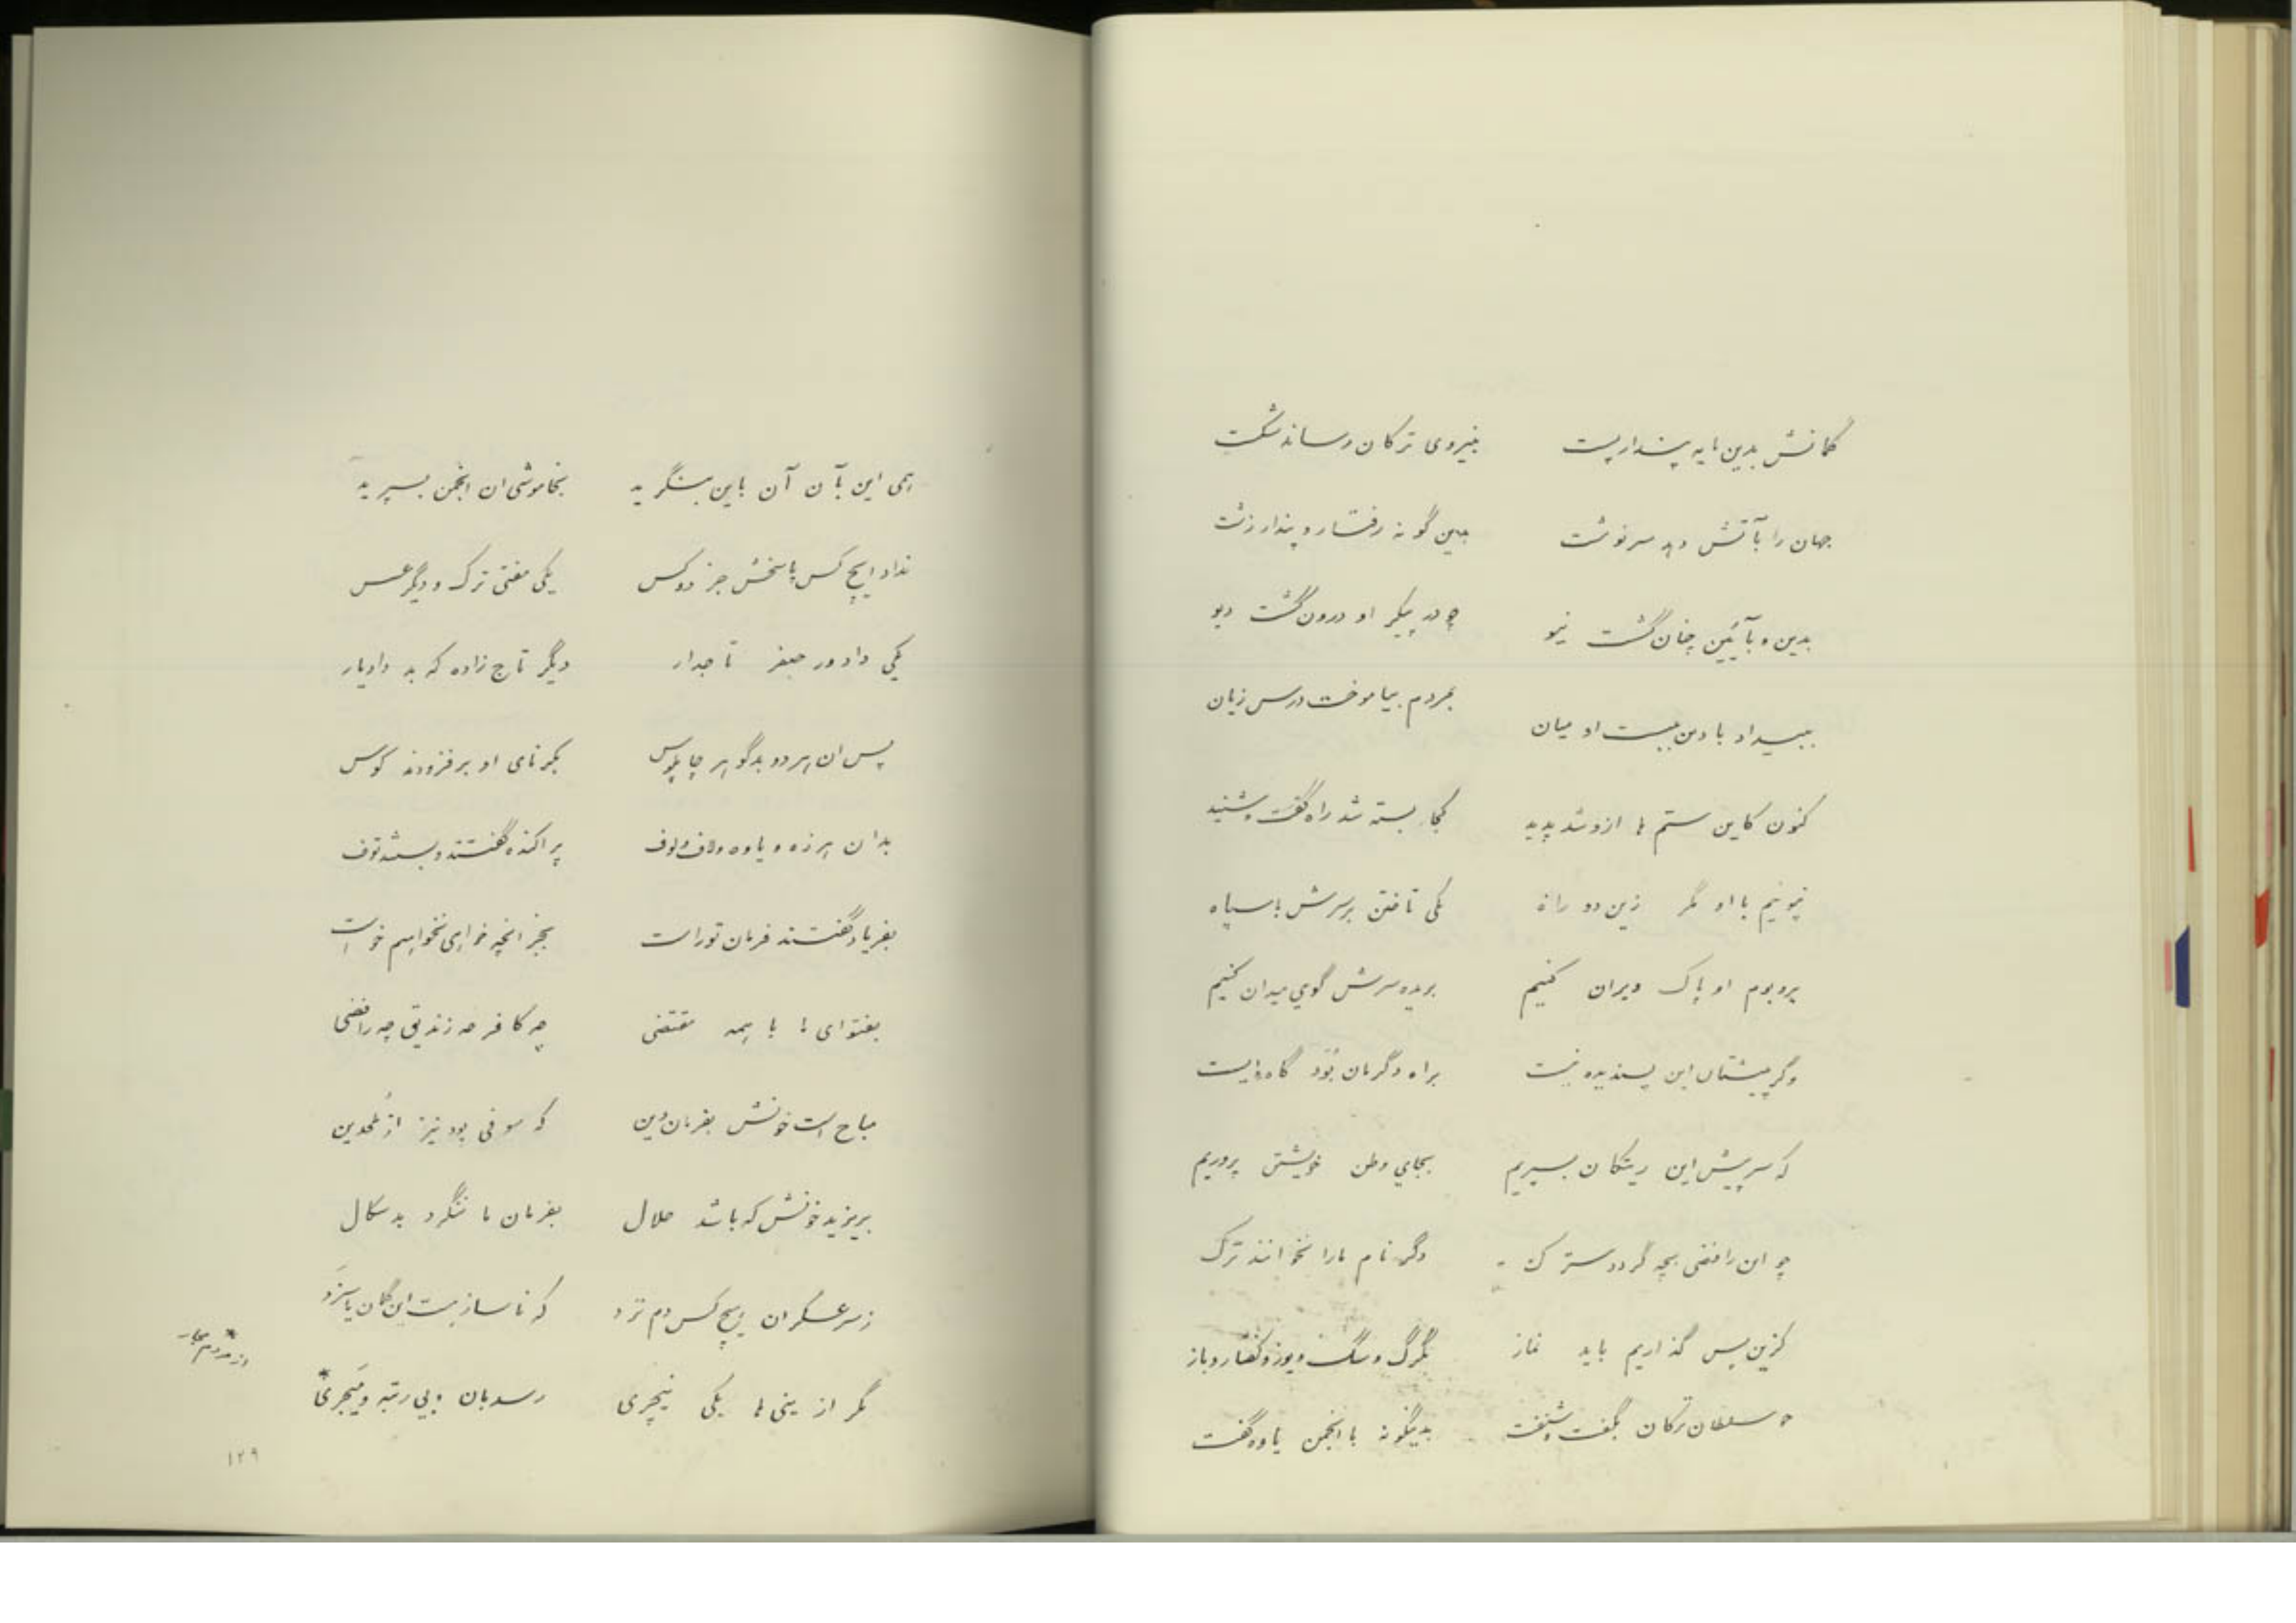 گمانش بدین مایه پندار پست    بنیروی ترکان رساند شکست
جهان را بآتش دهد سرنوشت    بدین گونه رفتار و پندار زشت
بدین و بآیین چنان گشت نیو    چو در پیکر او درون گشت دیو
ببیداد با دین ببست او میان    بمردم بیاموخت درس زیان
کنون کاین ستم ها ازو شد پدید    کجا بسته شد راه گفت و شنید
نپوئیم با او مگر زین دو راه    یکی تاختن بر سرش با سپاه
بروبوم او پاک ویران کنیم    بریده سرش گوی میدان کنیم
وگر پیشتان این پسندیده نیست    براه دگرمان بُوَد گاه زیست
که سر پیش این ریدکان بسپریم    بجای وطن خویشتن پروریم
چو ان رافضی بچه گردد سترک    دگر نام ما را نخوانند ترک
کزین پس گذاریم باید نماز    بگرگ و سگ و یوز و کفتار و باز
چو سلطان ترکان بگفت و شنفت    بدینگونه با انجمن یاوه گفت
همی این بآن آن باین بنگرید    بخاموشی ان انجمن بسپرید
نداد ایچ کس پاسخش جز دو کس    یکی مفتی ترک و دیگر عسس
یکی داد ور جعفر تاجدار    دیگر تاج زاده که بد دادیار
پس ان هر دو بدگوهر چاپلوس    بکرنای او بر فزودند کوس
بدان هرزه و یاوه و لاف و لوف    پراکنده گفتند و بستند توف
بفریاد گفتند فرمان تو راست    بجز انچه خواهی نخواهیم خواست
بفتوای ما با همه مقتضی    چه کافر چه زندیق چه رافضی
مباح است خونش بفرمان دین    که صوفی بود نیز از مُلحدین
بریزید خونش که باشد حلال    بفرمان ما ننگرد بد سگال
ز سرعسکران هیچ کس دم نزد    که ناساز بست این گمان یا سزد
مگر از ینی ها یکی نیچری    رسدبان و بی رتبه و مَیجری*
* از مردم مجار
۱۲۹